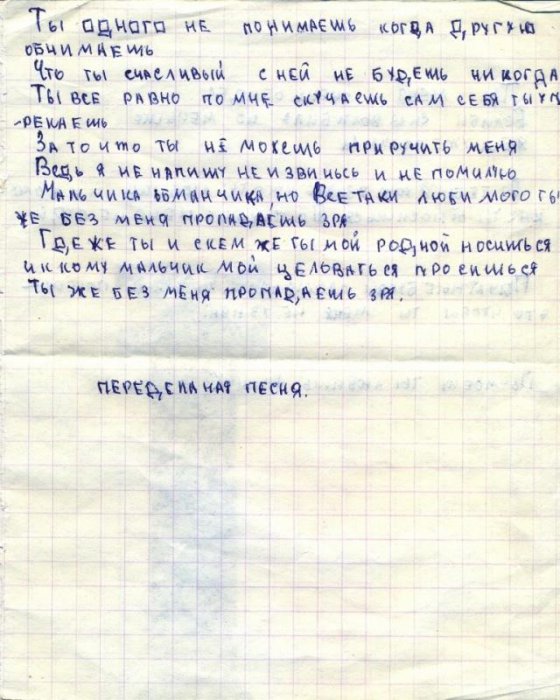 Ты одного не понимаешь когда другую
обнимаешь
Что ты счасливый с ней не будешь никогда
Ты все равно по мне скучаешь сам себя ты уп
-рекаешь
За то что ты не можешь приручить меня
Ведь я не напишу не извинюсь и не помилю
Мальчика обманчика, но все таки любимого ты
же без меня пропадаешь зря
Где же ты и с кем же ты мой родной носишься
и к кому мальчик мой целоваться просишься
Ты же без меня пропадаешь зря.
Переделаная песня.